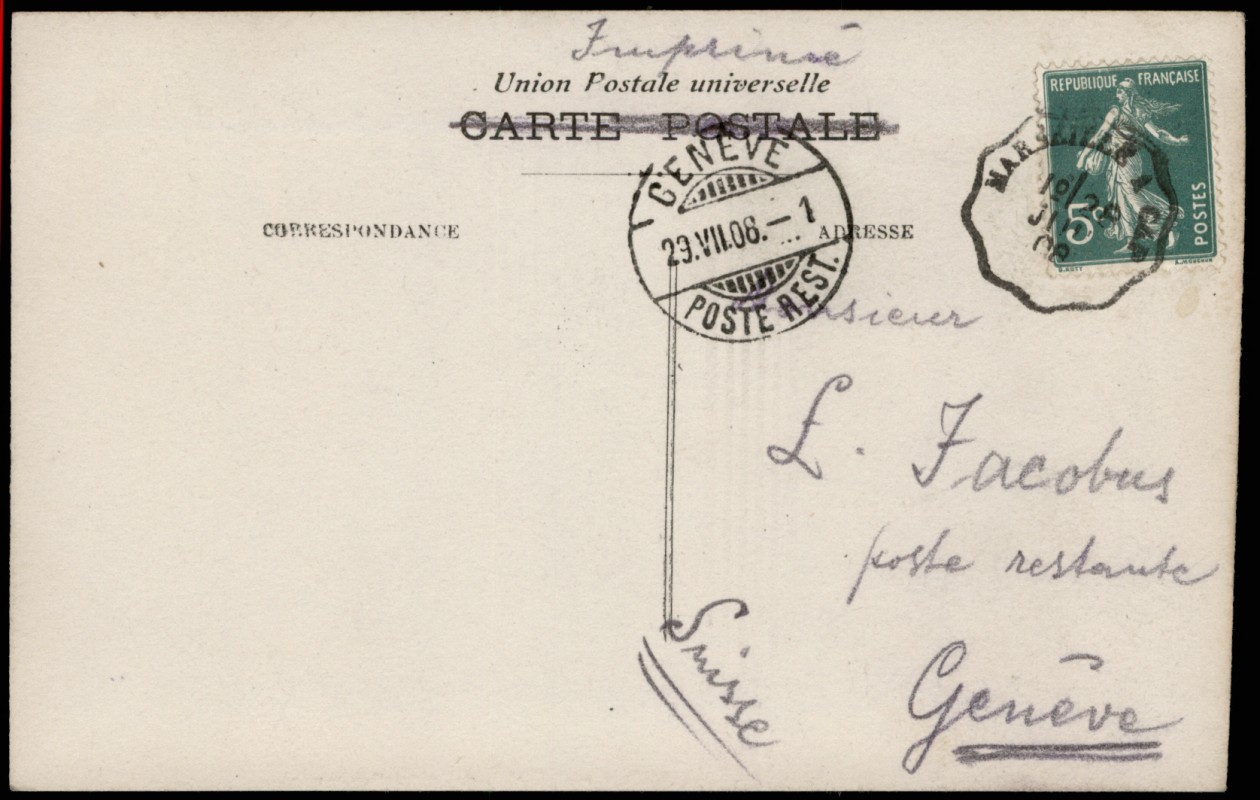 Imprimé
Union Postale universelle
CARTE POSTALE
REPUBLIQUE FRANÇAISE
5c
POSTES
MARSEILLE A
JUIL
08
GENÈVE
29.VII.08.— 1
POSTE REST.
CORRESPONDANCE
ADRESSE
Monsieur
L. Jacobus
poste restante
Genève
Suisse